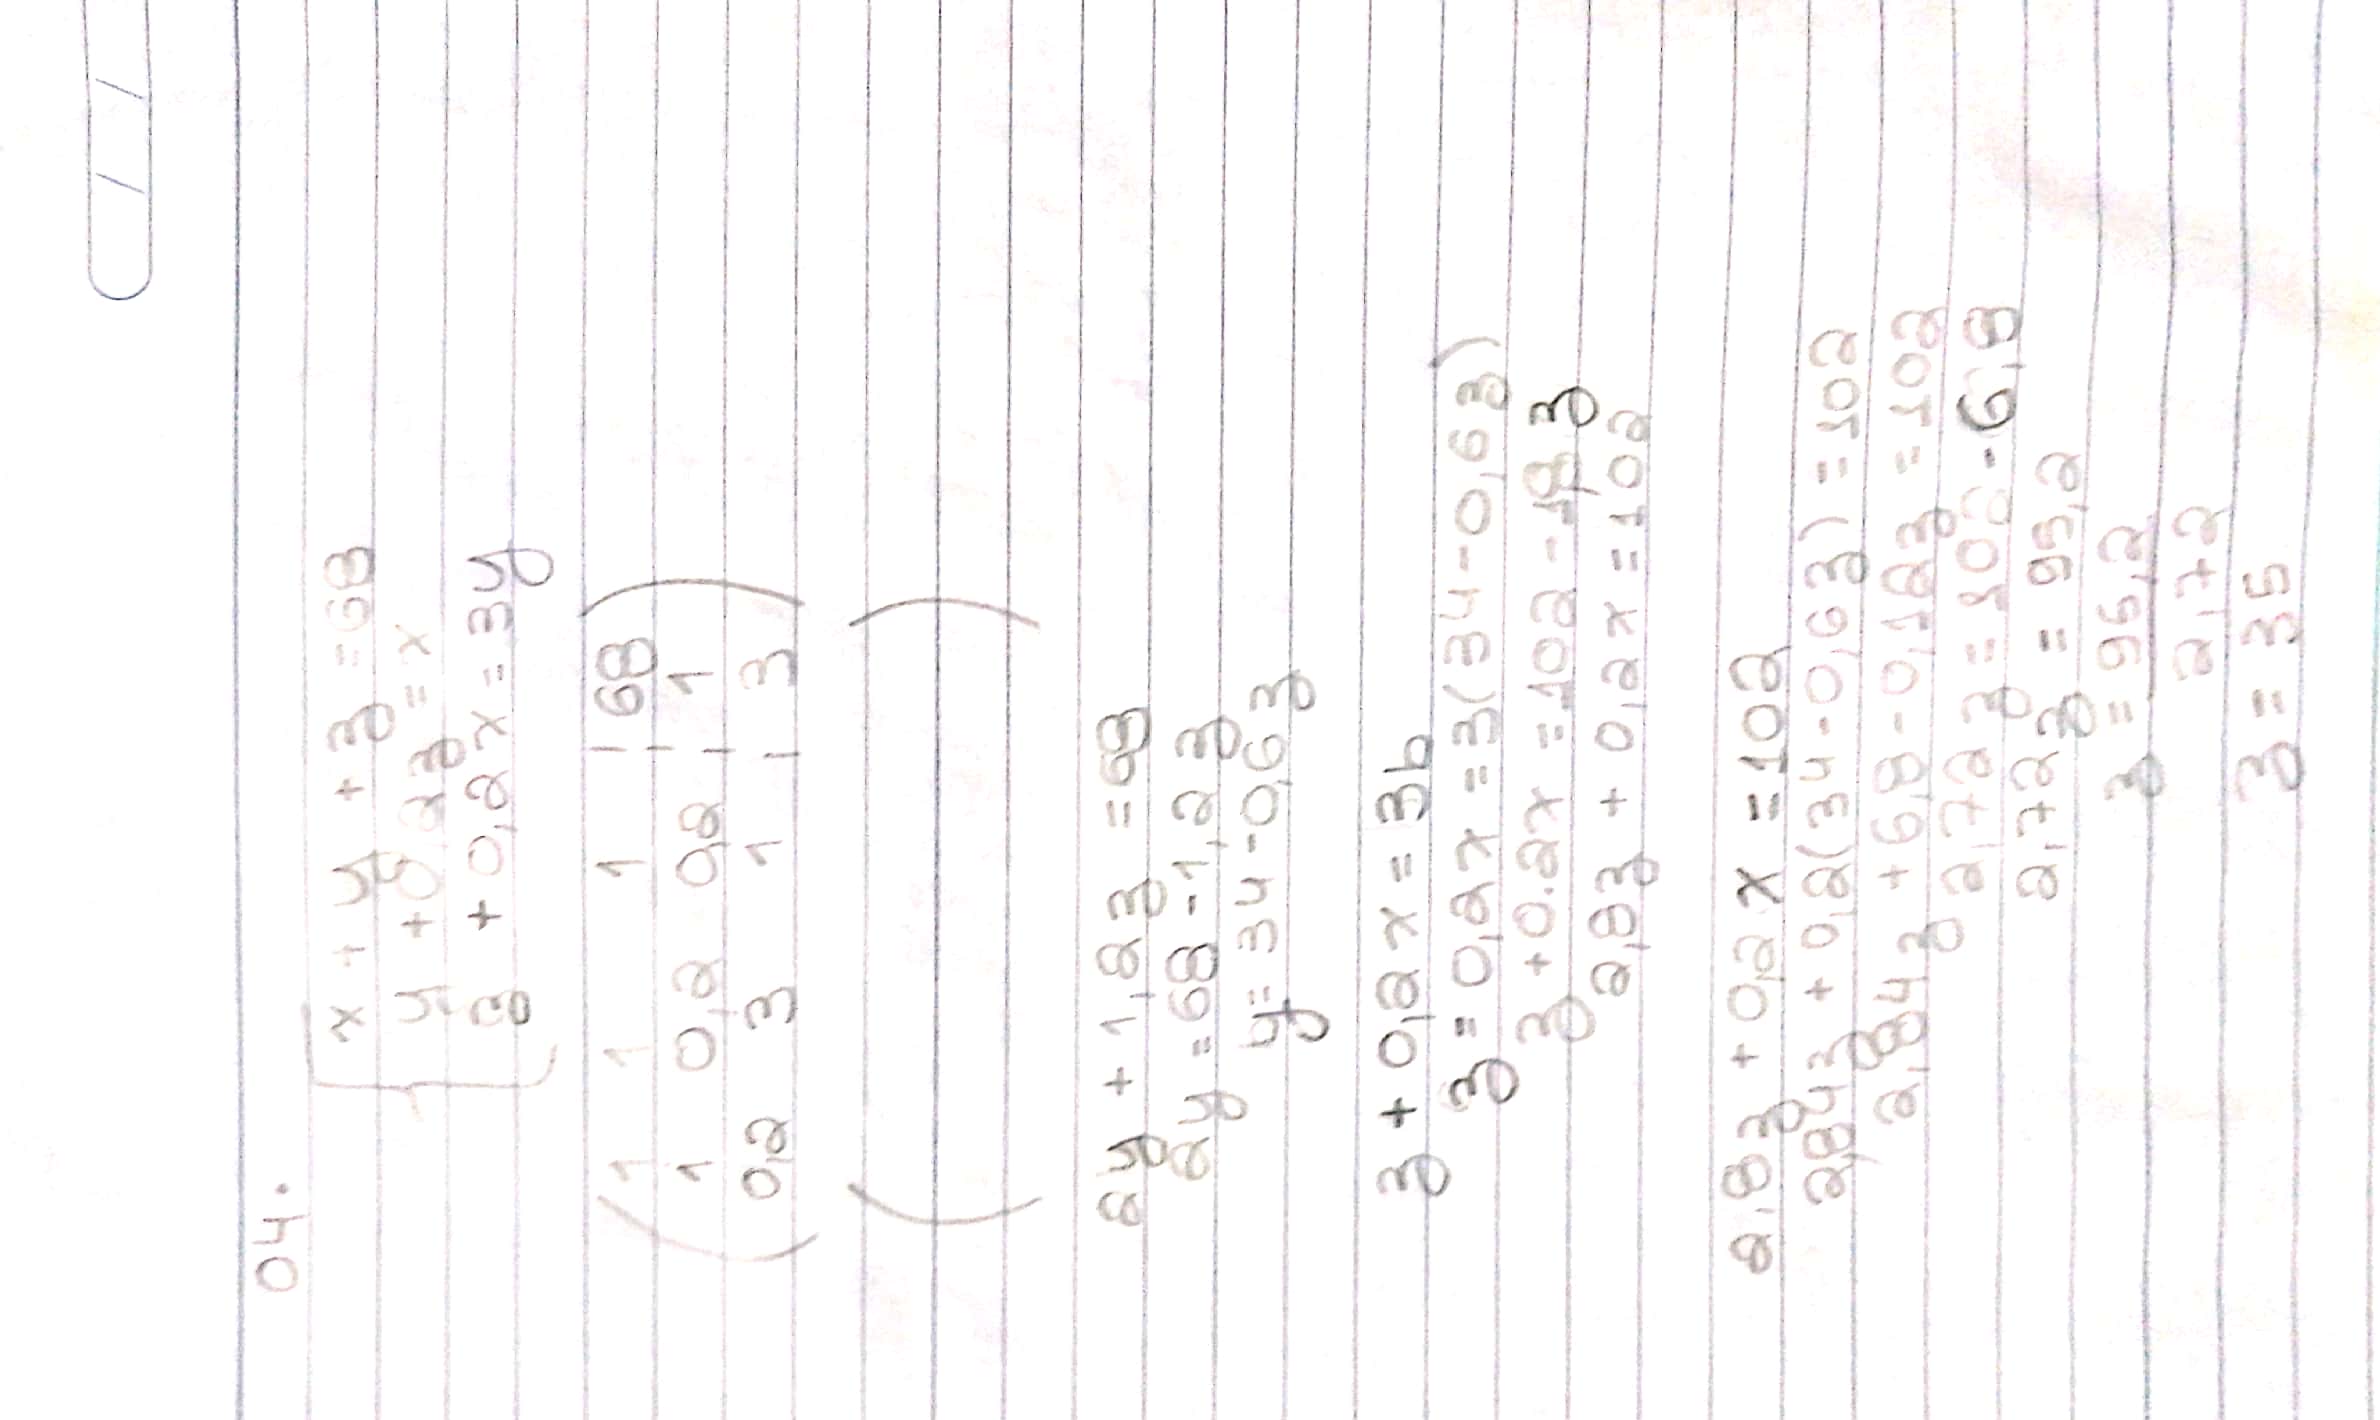 04.
x + y + z = 68
y + 0,2z = x
z + 0,2x = 3y
1 1 1 | 68
1 0,2 0,2 | 1
0,2 3 1 | 3
2y + 1,2z = 68
2y = 68 - 1,2z
y = 34 - 0,6z
z + 0,2x = 3b
z = 0,2x = 3(34 - 0,6z)
z + 0.2x = 102 - 1,8z
2,8z + 0,2x = 102
2,8z + 0,2x = 102
2,84z + 0,2(34 - 0,6z) = 102
2,84z + 6,8 - 0,12z = 102
2,72z = 102 - 6,8
2,72z = 95,2
z = 95,2
2,72
z = 35